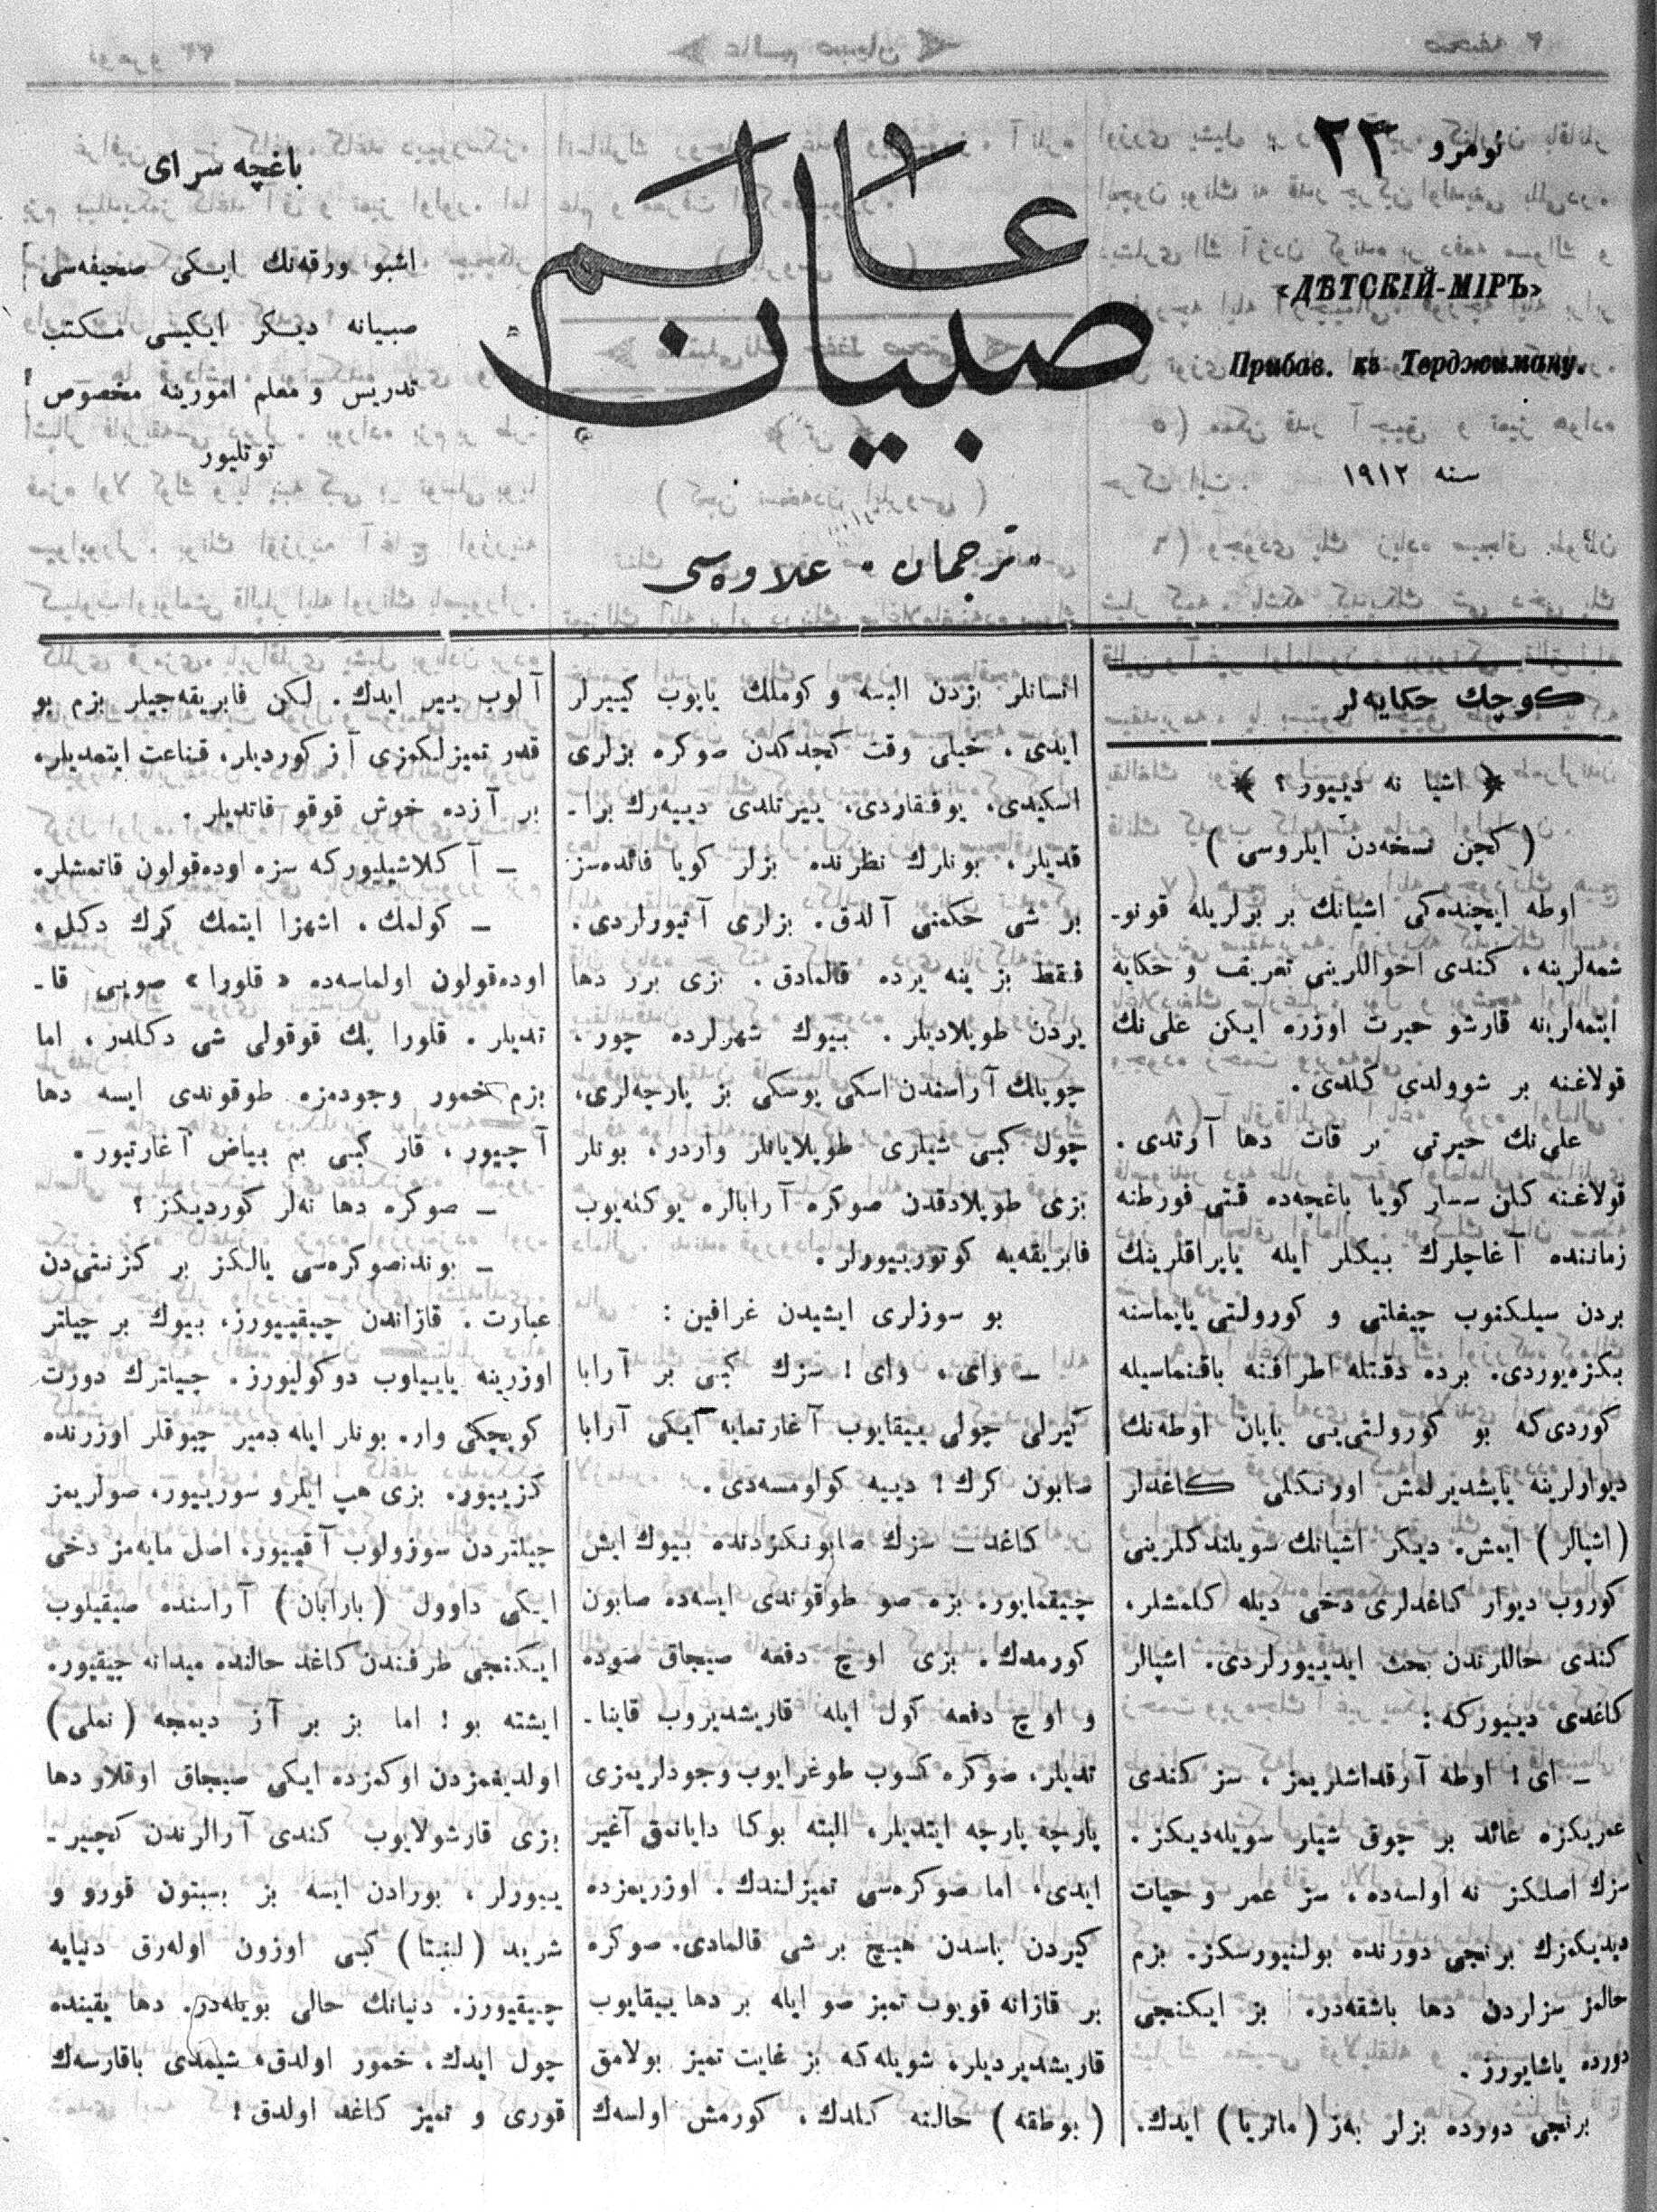 نومرو ٢٣
«ДѢТСКІЙ-МІРЪ»
Прибав. къ Терджиману.
سنه ١٩١٢
عالم صبيان
ترجمان علاوه‌سی
باغچه سرای
اشبو ورقه‌نك ايكی صحيفه‌سی
صبيانه ديكر ايكيسی مكتب
تدريس و معلم امورينه مخصوص
توتليور
كوچك حكايه‌لر
اشيا نه دييور ؟
( كچن نسخه‌دن ايلروسی )
اوطه ايچنده‌كی اشيانك بر برلريله قونو-
شمه‌لرينه، كندی احواللرينی تعريف و حكايه
ايتمه‌لرينه قارشو حيرت اوزره ايكن علی‌نك
قولاغنه بر شوولدی كلدی.
علی‌نك حيرتی بر قات دها آرتدی.
قولاغنه كلن سسلر كويا باغچه‌ده قتی فورطنه
زماننده آغاچلرك بيكلر ايله ياپراقلرينك
بردن سيلكنوب چيفلتی و كورولتی ياپماسنه
بكزه‌يوردی. برده دقتله اطرافنه باقنماسيله
كوردی‌كه بو كورولتی‌يی ياپان اوطه‌نك
ديوارلرينه ياپشديرلمش اورنكلی كاغدلر
(اشپالر) ايمش. ديكر اشيانك سويلندكلرينی
كوروب ديوار كاغدلری دخی ديله كلمشلر،
كندی حاللرندن بحث ايدييورلردی. اشپالر
كاغدی دييوركه :
ـ ای! اوطه آرقداشلريمز ، سز كندی
عمريكزه عائد بر چوق شيلر سويله‌ديكز.
سزك اصلكز نه اولسه‌ده ، سز عمر و حيات
ديديكمزك برنجی دورنده بولنيورسكز. بزم
حالمز سزلردن دها باشقه‌در. بز ايكنجی
دورده ياشايورز.
برنجی دورده بزلر به‌ز (ماتريا) ايدك.
انسانلر بزدن البسه و كوملك ياپوب كييرلر
ايدی، خيلی وقت كچدكدن صوكره بزلری
اسكيدی، يوفقاردی، ييرتلدی دييه‌رك برا-
قديلر، بونلرك نظرنده بزلر كويا فائده‌سز
بر شی حكمنی آلدق. بزلری آتيورلردی.
فقط بز ينه يرده قالمادق. بزی برر دها
يردن طوپلاديلر. بيوك شهرلرده چور،
چوپلك آراسندن اسكی پوسكی بز پارچه‌لری،
چول كبی شيلری طوپلايانلر واردر، بونلر
بزی طوپلادقدن صوكره آرابالره يوكله‌يوب
فابريقه‌يه كوتورييورلر.
بو سوزلری ايشيدن غرافين :
ـ وای، وای! سزك كبی بر آرابا
كيرلی چولی ييقايوب آغارتمايه ايكی آرابا
صابون كرك! دييه كولومسه‌دی.
كاغد ـ سزك صابونكزدنده بيوك ايش
چيقمايور. بزه صو طوقوندی ايسه‌ده صابون
كورمه‌دك. بزی اوچ دفعه صيجاق صوده
و اوچ دفعه كول ايله قاريشديروب قاينا-
تديلر، صوكره كسوب طوغرايوب وجودلريمزی
پارچه پارچه ايتديلر، البته بوكا دايانمق آغير
ايدی، اما صوكره‌سی تميزلندك. اوزريمزده
كيردن پاسدن هيچ بر شی قالمادی. صوكره
بر قازانه قويوب تميز صو ايله بر دها ييقايوب
قاريشديرديلر، شويله‌كه بز غايت تميز بولامق
(بوطقه) حالنه كلدك، كورمش اولسه‌ك
آلوب يير ايدك. لكن فابريقه‌جيلر بزم بو
قدر تميزلكمزی آز كورديلر، قناعت ايتمديلر،
بر آزده خوش قوقو قاتديلر.
ـ آكلاشيليوركه سزه اوده‌قولون قاتمشلر.
ـ كولمك، اشهزا ايتمك كرك دكل،
اوده‌قولون اولماسه‌ده «قلورا» صويی قا-
تديلر. قلورا پك قوقولی شی دكلدر، اما
بزم خمور وجودمزه طوقوندی ايسه دها
آچيور، قار كبی بم بياض آغارتيور.
ـ صوكره دها نه‌لر كورديكز ؟
ـ بوندنصوكره‌سی يالكز بر كزنتی‌دن
عبارت. قازاندن چيقييورز، بيوك بر چيلتر
اوزرينه ياييلوب دوكوليورز. چيلترك دورت
كوپچكی وار، بونلر ايله دمير چبوقلر اوزرنده
كزييور. بزی هپ ايلرو سورييور، صولريمز
چيلتردن سوزولوب آقييور، اصل مايه‌مز دخی
ايكی داوول (بارابان) آراسنده صيقيلوب
ايكنجی طرفندن كاغد حالنده ميدانه چيقيور.
ايشته بو! اما بز بر آز ديمجه (نملی)
اولديغمزدن اوكمزده ايكی صيجاق اوقلاو دها
بزی قارشولايوب كندی آرالرندن كچير-
ييورلر، بورادن ايسه بز بستون قورو و
شريد (لينتا) كبی اوزون اوله‌رق دنيايه
چيقيورز. دنيانك حالی بويله‌در. دها يقينده
چول ايدك، خمور اولدق، شيمدی باقارسه‌ك
قوری و تميز كاغد اولدق!